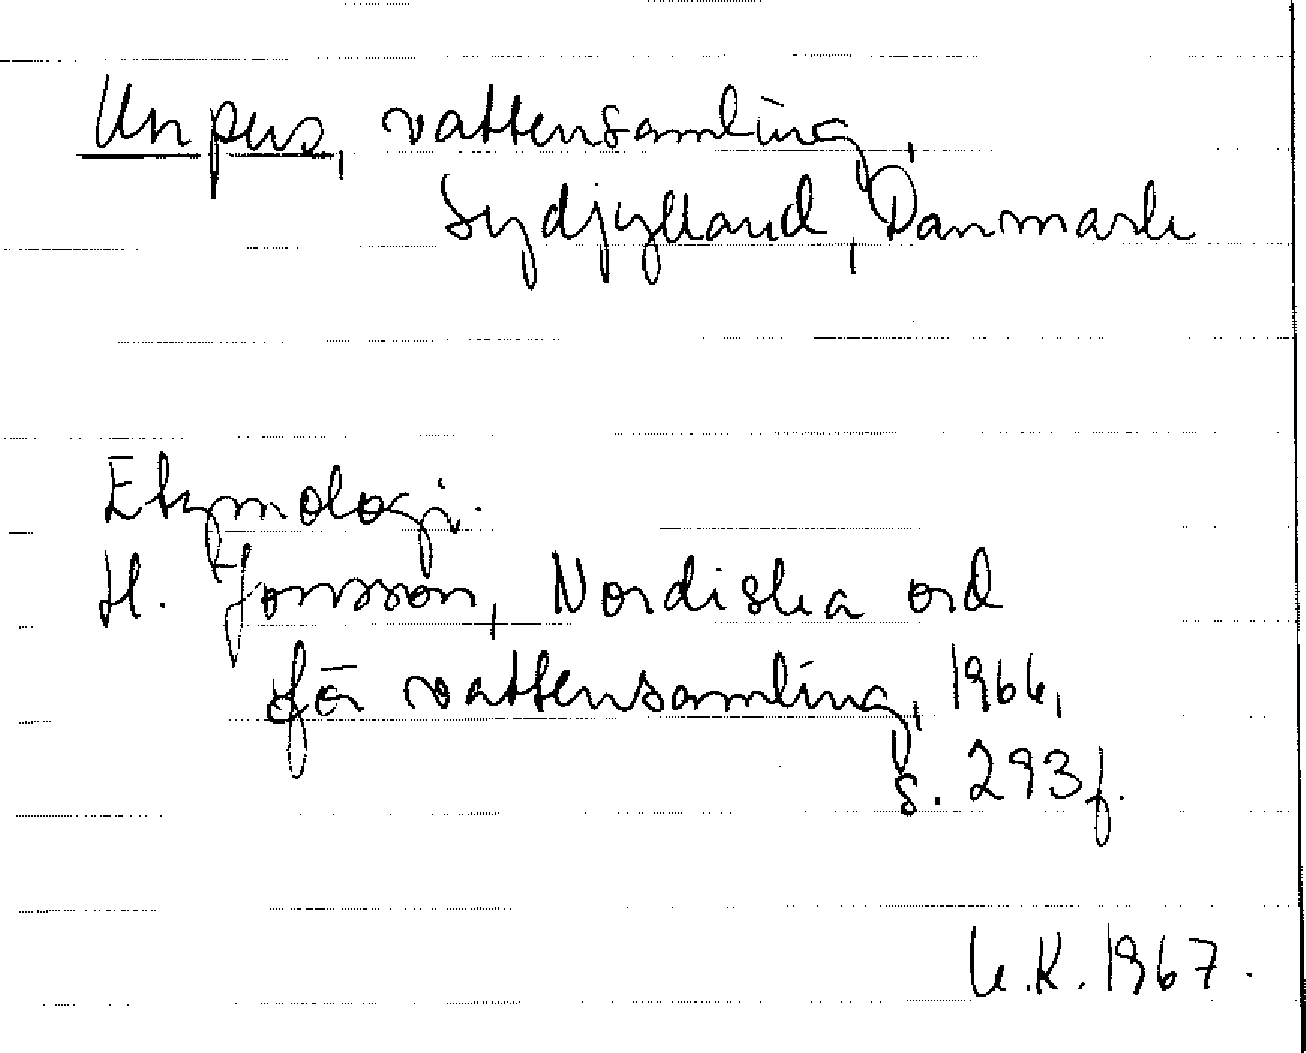 Unpus, vattensamling,
Sydjylland, Danmark
Etymologi.
H. Jonsson, Nordiska ord
för vattensamling, 1966,
s. 293 f.
U.K. 1967.